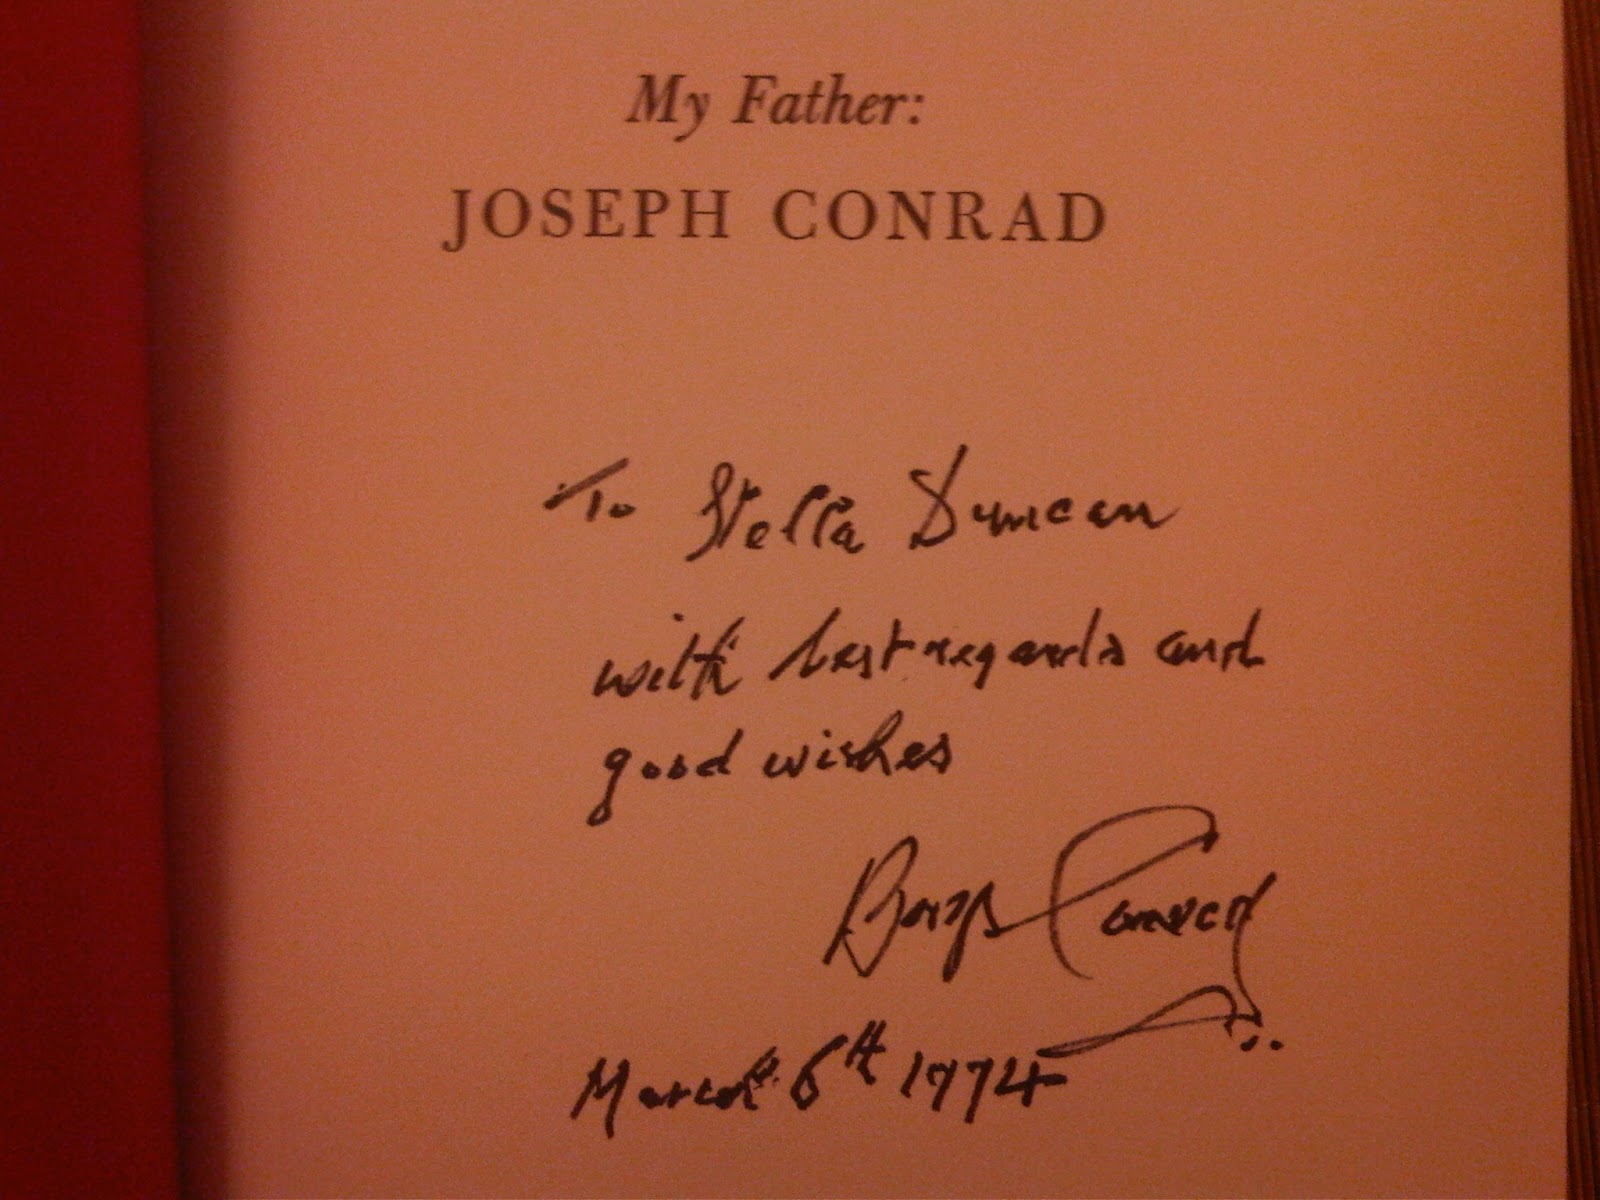 My Father:
JOSEPH CONRAD
To Stella Duncan
with best regards and
good wishes
Borys Conrad
March 6th 1974